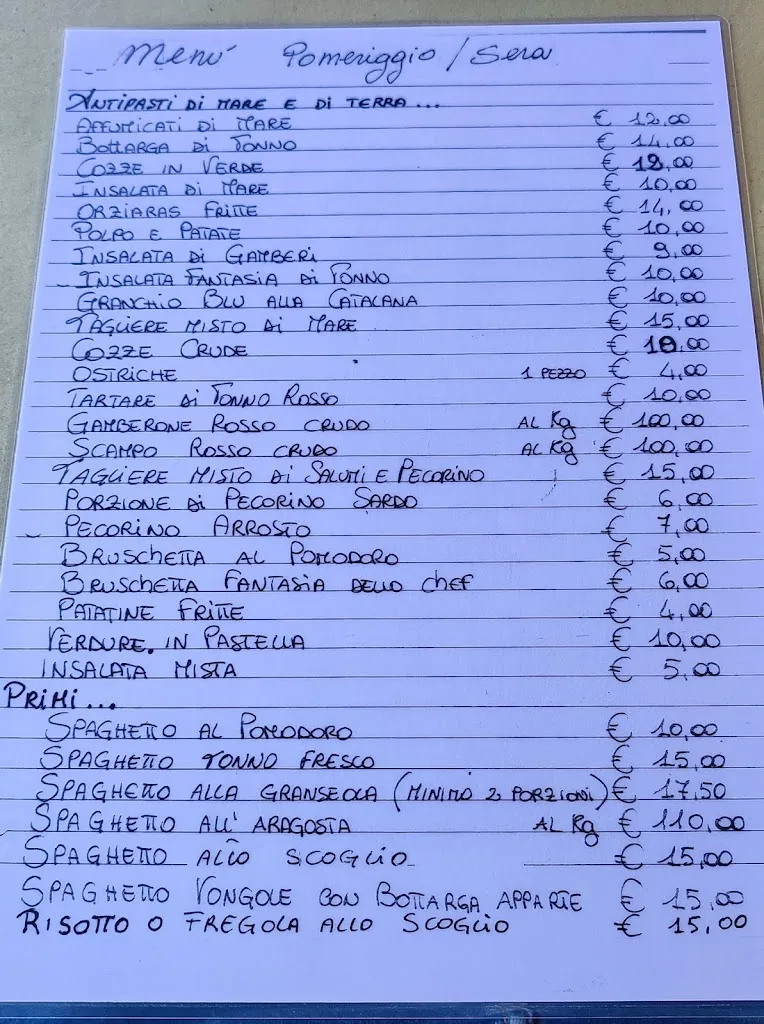 Menù Pomeriggio / Sera
ANTIPASTI DI MARE E DI TERRA...
AFFUMICATI DI MARE € 12,00
BOTTARGA DI TONNO € 14,00
COZZE IN VERDE € 12,00
INSALATA DI MARE € 10,00
ORZIARAS FRITTE € 14,00
POLPO E PATATE € 10,00
INSALATA DI GAMBERI € 9,00
INSALATA FANTASIA DI TONNO € 10,00
GRANCHIO BLU ALLA CATALANA € 10,00
TAGLIERE MISTO DI MARE € 15,00
COZZE CRUDE € 10,00
OSTRICHE 1 PEZZO € 4,00
TARTARE DI TONNO ROSSO € 10,00
GAMBERONE ROSSO CRUDO AL Kg € 100,00
SCAMPO ROSSO CRUDO AL Kg € 100,00
TAGLIERE MISTO DI SALUMI E PECORINO € 15,00
PORZIONE DI PECORINO SARDO € 6,00
PECORINO ARROSTO € 7,00
BRUSCHETTA AL POMODORO € 5,00
BRUSCHETTA FANTASIA DELLO CHEF € 6,00
PATATINE FRITTE € 4,00
VERDURE. IN PASTELLA € 10,00
INSALATA MISTA € 5,00
PRIMI...
SPAGHETTO AL POMODORO € 10,00
SPAGHETTO TONNO FRESCO € 15,00
SPAGHETTO ALLA GRANSEOLA (MINIMO 2 PORZIONI) € 17,50
SPAGHETTO ALL' ARAGOSTA AL Kg € 110,00
SPAGHETTO ALLO SCOGLIO € 15,00
SPAGHETTO VONGOLE CON BOTTARGA APPARTE € 15,00
RISOTTO O FREGOLA ALLO SCOGLIO € 15,00